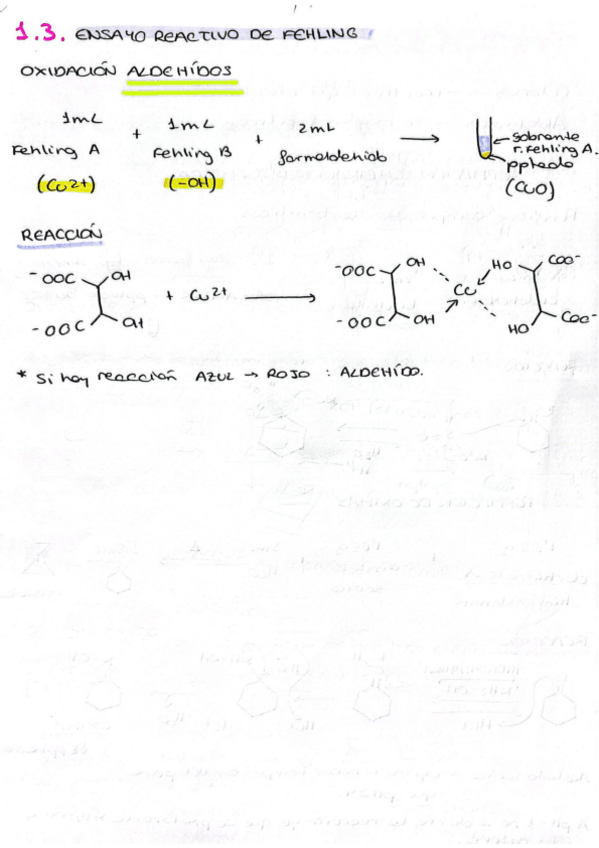 1.3. ENSAYO REACTIVO DE FEHLING
OXIDACIÓN ALDEHÍDOS
1mL + 1mL + 2mL → sobrante
Fehling A Fehling B formaldehido r. Fehling A.
(Cu2+) (-OH) pptado
(CuO)
REACCIÓN
-OOC OH -OOC OH HO COO-
+ Cu2+ → Cu
-OOC OH -OOC OH HO COO-
* Si hay reacción AZUL → ROJO : ALDEHÍDO.